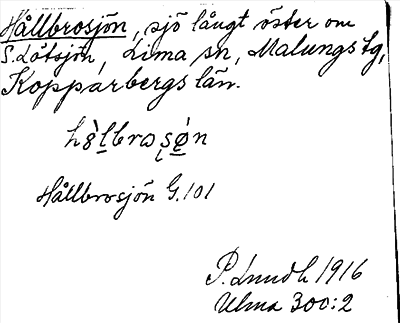 Hållbrosjön, sjö långt öster om
S. Lötsjön, Lima sn, Malungs tg,
Kopparbergs län.
Hållbrosjön G.101
P. Lundh 1916
Ulma 300:2